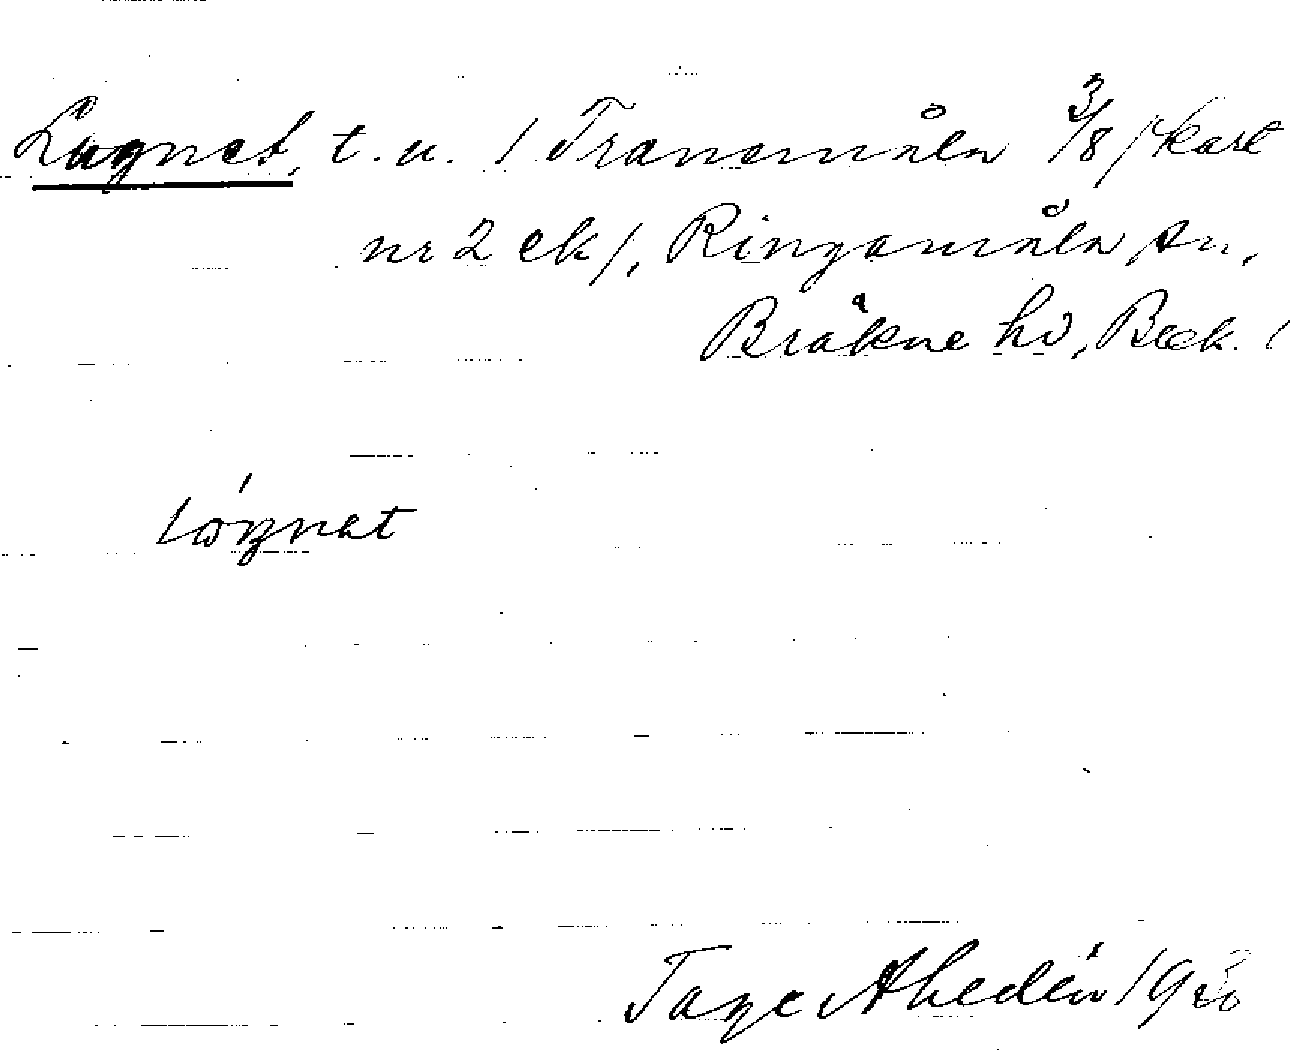 Lugnet, t. u. / Tranemåla 3/8 / kart
nr 2 ek /, Ringamåla sn,
Bräkne hd, Blek. /
lógnat
Tage Ahedén 1930